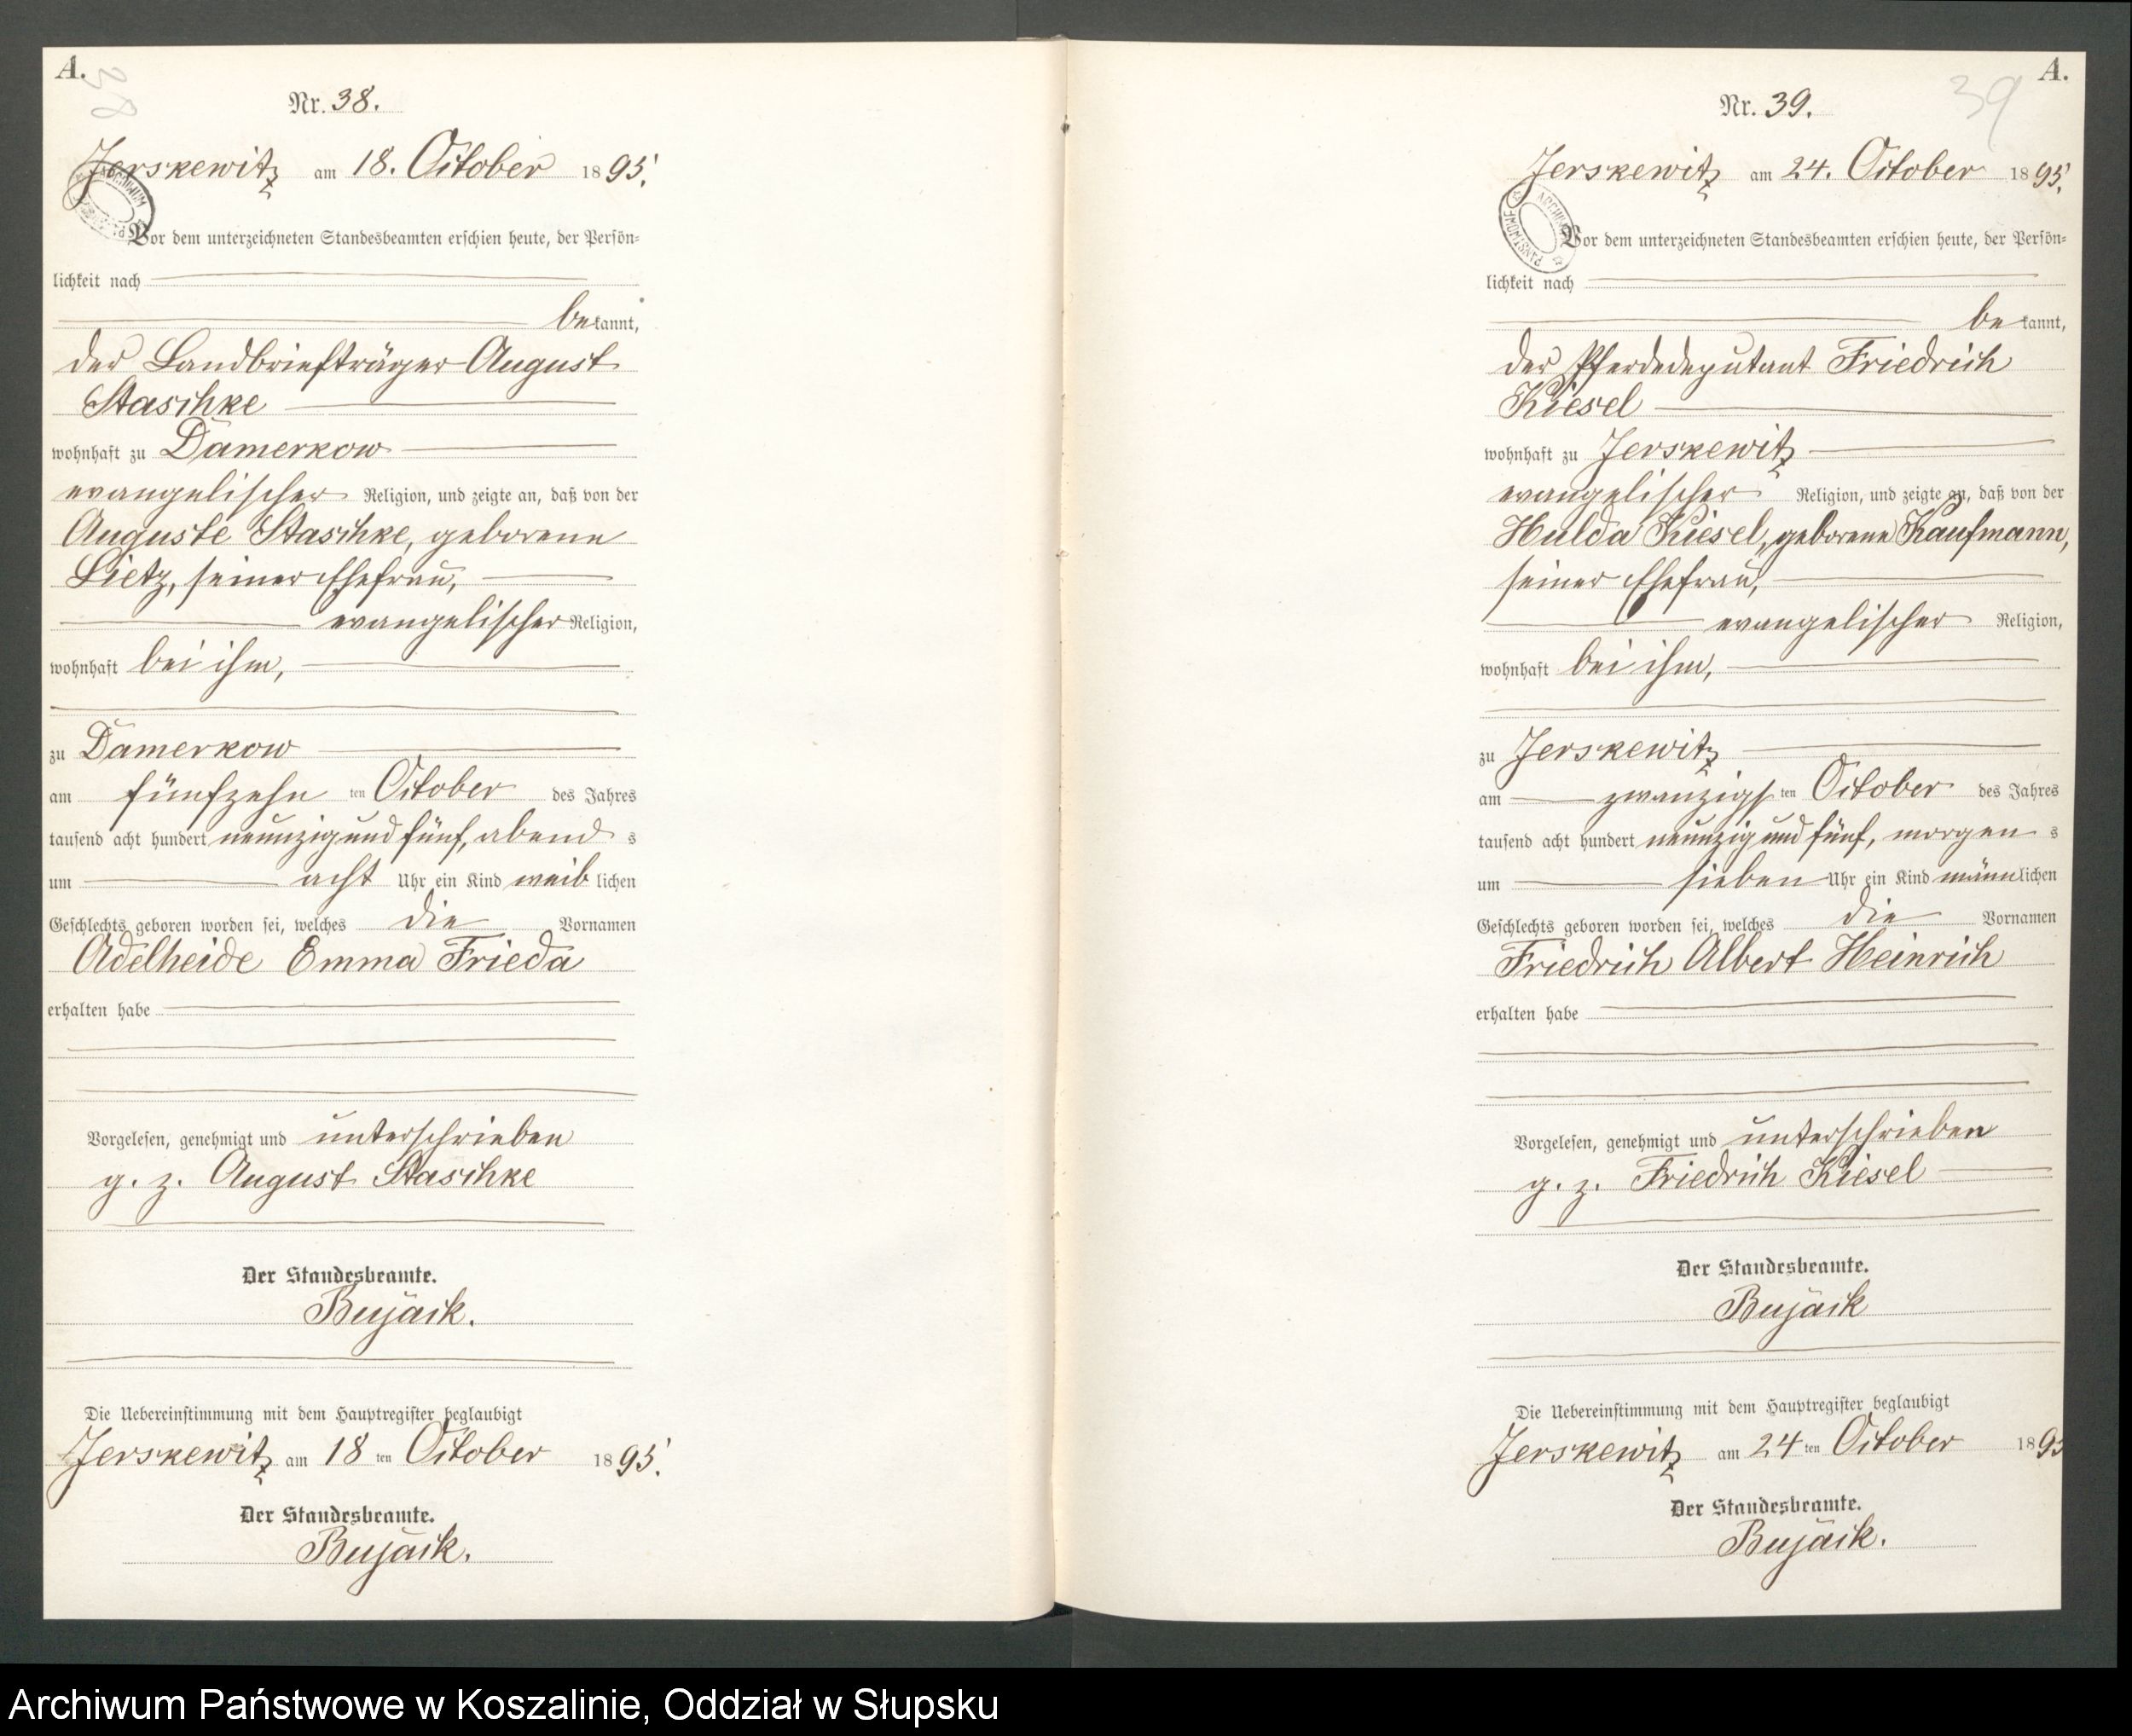 A.
38
Nr. 38.
Jerskewitz am 18. October 1895.
Vor dem unterzeichneten Standesbeamten erschien heute, der Persön-
lichkeit nach
bekannt,
der Landbriefträger August
Staschke
wohnhaft zu Damerkow
evangelischer Religion, und zeigte an, daß von der
Auguste Staschke, geborene
Lietz, seiner Ehefrau,
evangelischer Religion,
wohnhaft bei ihm,
zu Damerkow
am fünfzehn ten October des Jahres
tausend acht hundert neunzig und fünf, abend s
um acht Uhr ein Kind weib lichen
Geschlechts geboren worden sei, welches die Vornamen
Adelheide Emma Frieda
erhalten habe
Vorgelesen, genehmigt und unterschrieben
g. z. August Staschke
Der Standesbeamte.
Bujack.
Die Uebereinstimmung mit dem Hauptregister beglaubigt
Jerskewitz am 18 ten October 1895.
Der Standesbeamte.
Bujack.
A.
39
Nr. 39.
Jerskewitz am 24. October 1895.
Vor dem unterzeichneten Standesbeamten erschien heute, der Persön-
lichkeit nach
bekannt,
der Pferdedeputant Friedrich
Kiesel
wohnhaft zu Jerskewitz
evangelischer Religion, und zeigte an, daß von der
Hulda Kiesel, geborene Kaufmann,
seiner Ehefrau,
evangelischer Religion,
wohnhaft bei ihm,
zu Jerskewitz
am zwanzigs ten October des Jahres
tausend acht hundert neunzig und fünf, morgen s
um sieben Uhr ein Kind männlichen
Geschlechts geboren worden sei, welches die Vornamen
Friedrich Albert Heinrich
erhalten habe
Vorgelesen, genehmigt und unterschrieben
g. z. Friedrich Kiesel
Der Standesbeamte.
Bujack
Die Uebereinstimmung mit dem Hauptregister beglaubigt
Jerskewitz am 24 ten October 1895
Der Standesbeamte.
Bujack.
Archiwum Państwowe w Koszalinie, Oddział w Słupsku